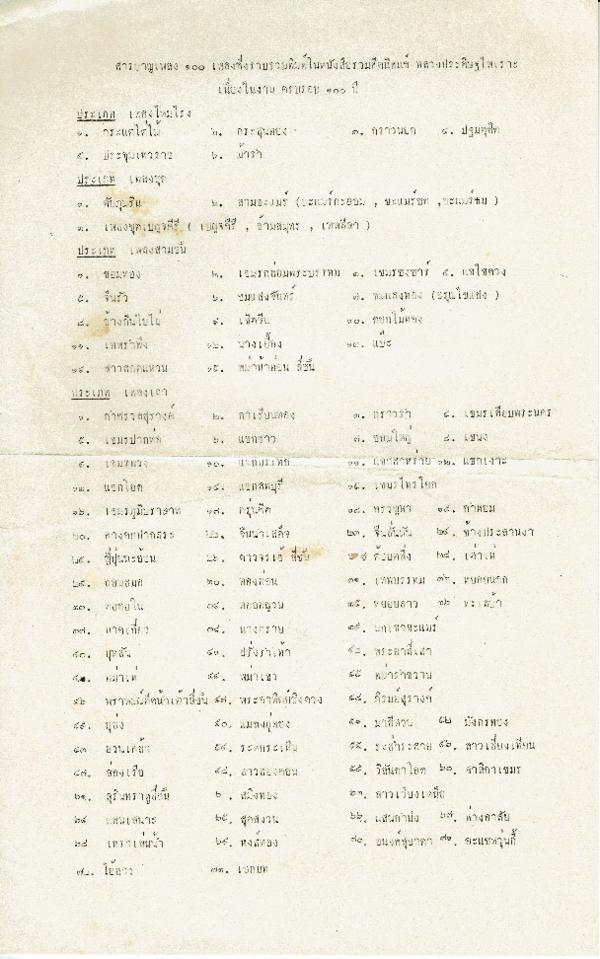 สารบาญเพลง ๑๐๐ เพลงซึ่งรวบรวมพิมพ์ในหนังสือรวมคีตนิพนธ์ หลวงประดิษฐไพเราะ
เนื่องในงาน ครบรอบ ๑๐๐ ปี
ประเภท เพลงโหมโรง
๑. กระแตไต่ไม้ ๒. กระสุนทอง ๓. กราวนอก ๔. ปฐมดุสิต
๕. ประชุมเทวราช ๖. ม้ารำ
ประเภท เพลงชุด
๑. ตับภุมริน ๒. สามขะแมร์ (ขะแมร์กะออม , ขะแมร์ซอ , ขะแมร์ชม )
๓. เพลงชุดเบญจคีรี ( เบญจคีรี , ข้ามสมุทร ,
ประเภท เพลงสามชั้น
๑. ขอมทอง ๒. เขมรกล่อมพระบรรทม ๓. เขมร ๔. แขไขดวง
๕. จีนรัว ๖. ชมแสงจันทร์ ๗. ชมแสงทอง (อรุณไขแสง )
๘. ช้างกินใบไผ่ ๙. เชิดจีน ๑๐. ดอกไม้ทอง
๑๑. เทพรำพึง ๑๒. นางเยื้อง ๑๓. แป๊ะ
๑๔. สาวสอดแหวน ๑๕. พม่าห้าท่อน สี่ชั้น
ประเภท เพลงเถา
๑. กำสรวลสุรางค์ ๒. กาเรียนทอง ๓. กราวรำ ๔. เขมรเลียบพระนคร
๕. เขมรปากท่อ ๖. แขกขาว ๗. ขอมใหญ่ ๘. เขนง
๙. เขมรพวง ๑๐. ๑๑. แขกสาหร่าย ๑๒. แขกเงาะ
๑๓. แขกโอด ๑๔. แขกลพบุรี ๑๕. เขมรไทรโยค
๑๖. เขมรภูมิประสาท ๑๗. ครุ่นคิด ๑๘. ครวญหา ๑๙. คำหอม
๒๐. คางคกปากสระ ๒๑. จีนนำเสด็จ ๒๓. จีนลั่นถัน ๒๔. ช้างประสานงา
๒๕. ญี่ปุ่นฉะอ้อน ๒๖. ดาวจระเข้ สี่ชั้น ต้อยตลิ่ง ๒๘. เต่าเห่
๒๙. ถอนสมอ ๓๐. ทองย่อน ๓๑. เทพบรรทม ๓๒. ทยอยนอก
๓๓. ทยอยใน ๓๔. ทยอยญวน ๓๕. ทยอยลาว ๓๖. ทะเลบ้า
๓๗. นาคเกี้ยว ๓๘. นางครวญ ๓๙. นกเขาขะแมร์
๔๐. บุหลัน ๔๑. ฝรั่งรำเท้า ๔๒. พระอาลี่เสา
๔๓. พม่าเห่ ๔๔. พม่าเขว ๔๕ พม่ารำขวาน
๔๖ พราหมณ์ดีดน้ำเต้าสี่ชั้น ๔๗. พระอาทิตย์ชิงดวง ๔๘. ภิรมย์สุรางค์
๔๙. มุล่ง ๕๐. แมลงภู่ทอง ๕๑. มาลีหวน ๕๒ มังกรทอง
๕๓ ยวนเคล้า ๕๔. ระหกระเหิน ๕๕. ระส่ำระสาย ๕๖. ลาวเสี่ยงเทียน
๕๗. ล่องเรือ ๕๘. ลาวสองคอน ๕๙. วิลันดาโอด ๖๐. สาลิกาเขมร
๖๑. สุรินทราหูสี่ชั้น ๖ สมิงทอง ๖๓. ลาวเวียงเหนือ
๖๔ แสนเสนาะ ๖๕. สุดสงวน ๖๖. แสนคำนึง ๖๗. ห่วงอาลัย
๖๘ เหราเล่นน้ำ ๖๙. หงส์ทอง ๗๐. อนงค์สุชาดา ๗๑. ขะแมหวุ่นกี้
๗๒. โอ้ลาว ๗๓. เอกบท